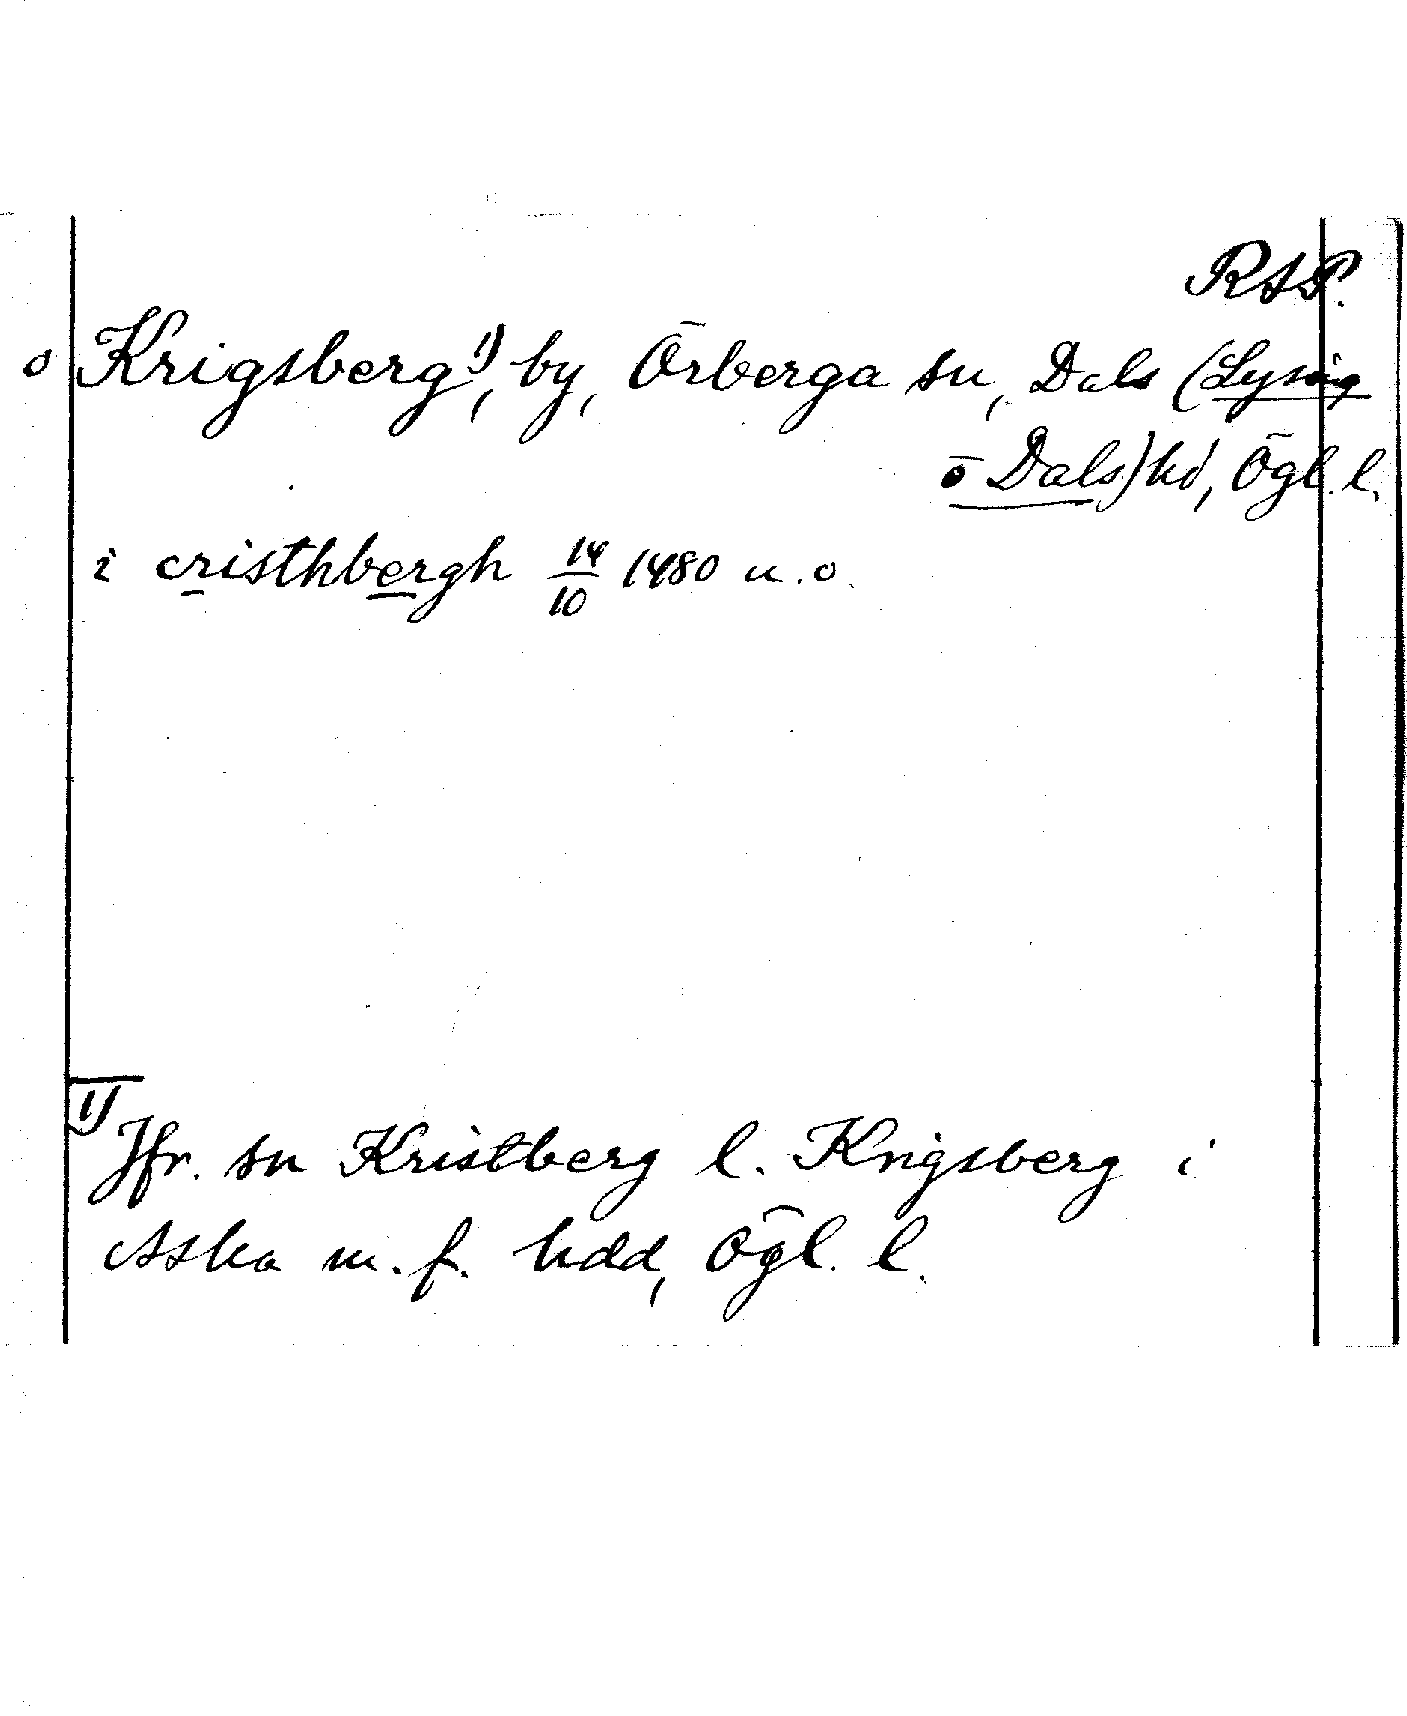 RAP.
o Krigsberg¹⁾, by, Örberga sn, Dals (Lysing
o Dals) hd, Ögl. l.
i cristhbergh 14/10 1480 u. o.
1)
Jfr. sn Kristberg l. Krigsberg i
Aska m. f. hdd, Ögl. l.